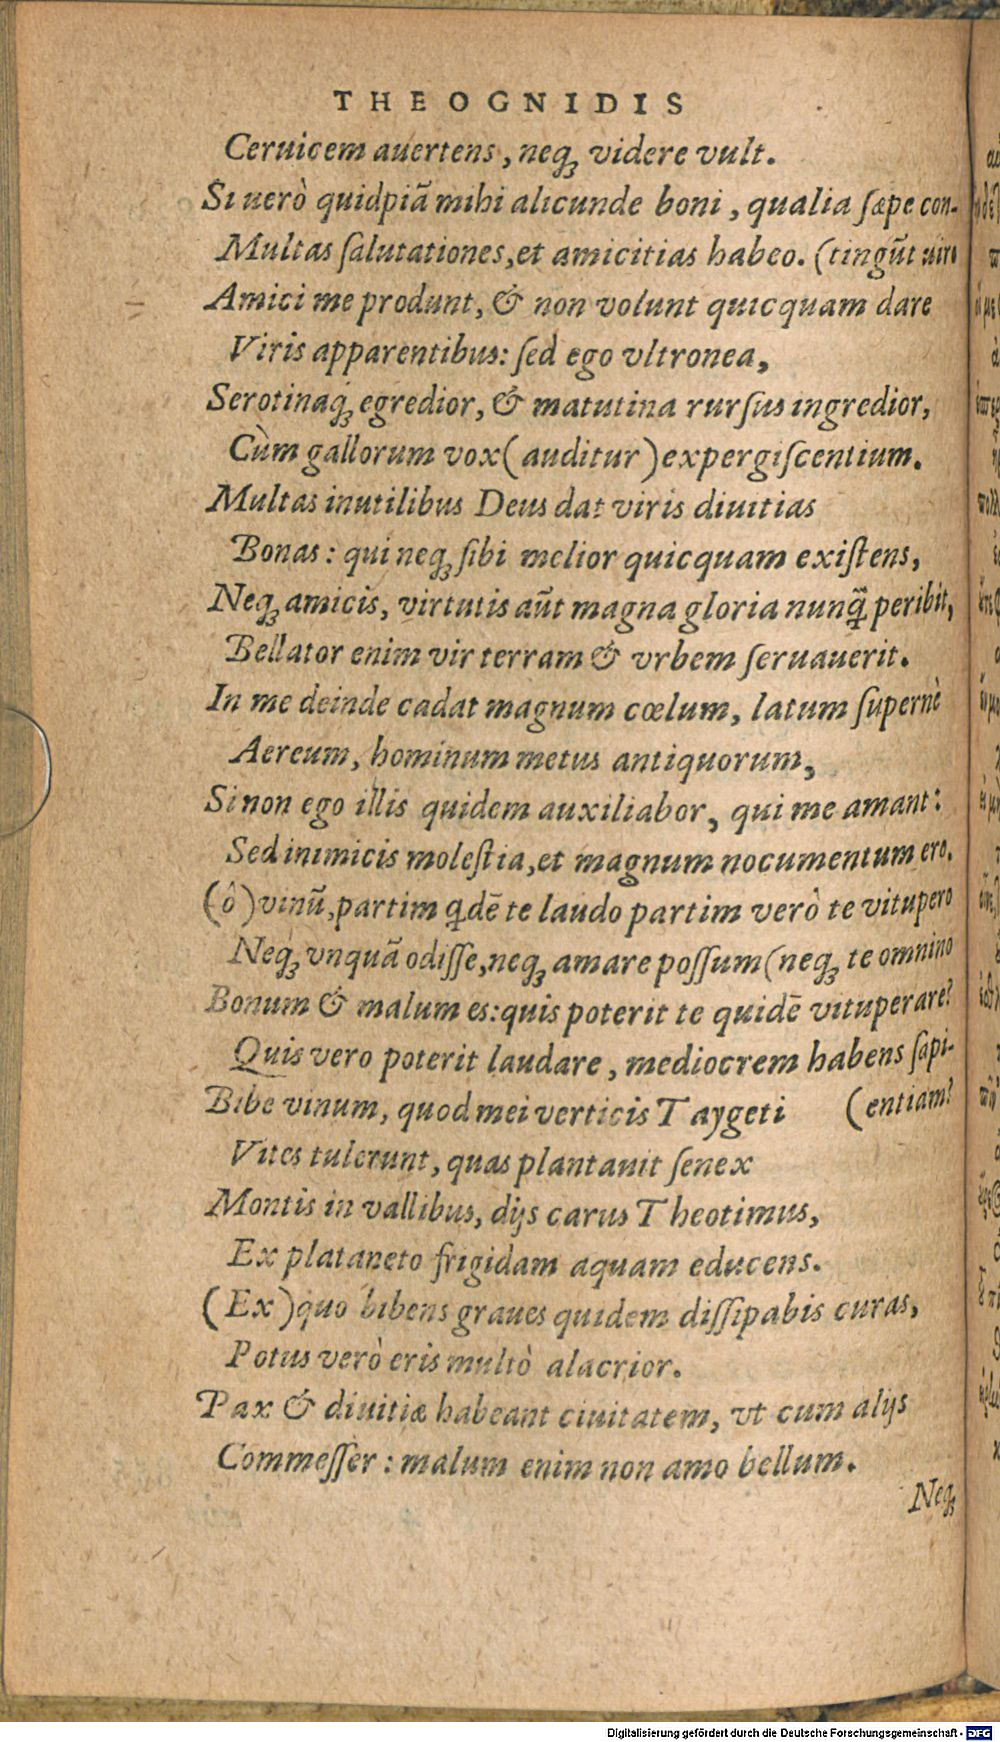 THEOGNIDIS
Ceruicem auertens, neqꝫ videre vult.
Si uerò quidpiã mihi alicunde boni, qualia sæpe con-
Multas ſalutationes, et amicitias habeo. (tingũt uiro
Amici me produnt, & non volunt quicquam dare
Viris apparentibus: ſed ego vltronea,
Serotinaqꝫ egredior, & matutina rurſus ingredior,
Cùm gallorum vox (auditur) expergiſcentium.
Multas inutilibus Deus dat viris diuitias
Bonas: qui neqꝫ ſibi melior quicquam exiſtens,
Neqꝫ amicis, virtutis aũt magna gloria nunq̃ peribit,
Bellator enim vir terram & vrbem ſeruauerit.
In me deinde cadat magnum cœlum, latum ſupernè
Aereum, hominum metus antiquorum,
Si non ego illis quidem auxiliabor, qui me amant:
Sed inimicis moleſtia, et magnum nocumentum ero.
(ô) vinũ, partim q̃dẽ te laudo partim verò te vitupero
Neqꝫ vnquã odiſſe, neqꝫ amare poſſum (neqꝫ te omnino
Bonum & malum es: quis poterit te quidẽ vituperare?
Quis vero poterit laudare, mediocrem habens ſapi-
Bibe vinum, quod mei verticis Taygeti (entiam?
Vites tulerunt, quas plantauit ſenex
Montis in vallibus, dijs carus Theotimus,
Ex plataneto frigidam aquam educens.
(Ex) quo bibens graues quidem diſſipabis curas,
Potus verò eris multò alacrior.
Pax & diuitiæ habeant ciuitatem, vt cum alijs
Commeſſer: malum enim non amo bellum.
Neqꝫ
Digitalisierung gefördert durch die Deutsche Forschungsgemeinschaft - DFG